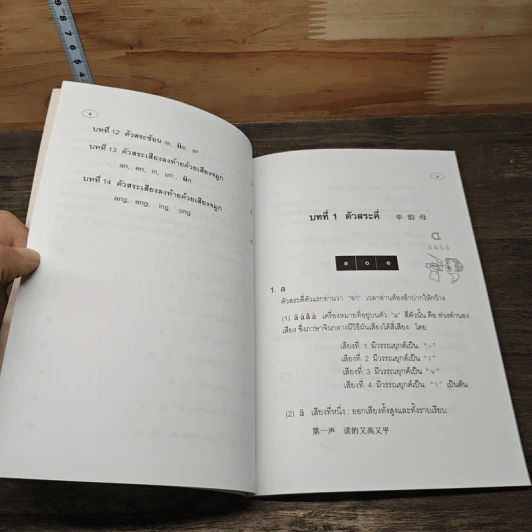 บทที่ 12 ตัวสระซ้อน ie, üe, er
บทที่ 13 ตัวสระเสียงลงท้ายด้วยเสียงจมูก
an, en, in, un, ün
บทที่ 14 ตัวสระเสียงลงท้ายด้วยเสียงจมูก
ang, eng, ing, ong
บทที่ 1 ตัวสระคี่ 单韵母
a o e
1. a
ตัวสระคี่ตัวแรกอ่านว่า "อา" เวลาอ่านต้องอ้าปากให้กว้าง
(1) ā á ǎ à เครื่องหมายที่อยู่บนตัว "a" สี่ตัวนั้น คือ ท่วงทำนอง
เสียง ซึ่งภาษาจีนกลางมีวิธีผันเสียงได้สี่เสียง โดย
เสียงที่ 1 มีวรรณยุกต์เป็น "-"
เสียงที่ 2 มีวรรณยุกต์เป็น "/"
เสียงที่ 3 มีวรรณยุกต์เป็น "v"
เสียงที่ 4 มีวรรณยุกต์เป็น "\" เป็นต้น
(2) ā เสียงที่หนึ่ง : ออกเสียงทั้งสูงและทั้งราบเรียบ
第一声 读的又高又平
9 8 7 6 5 4